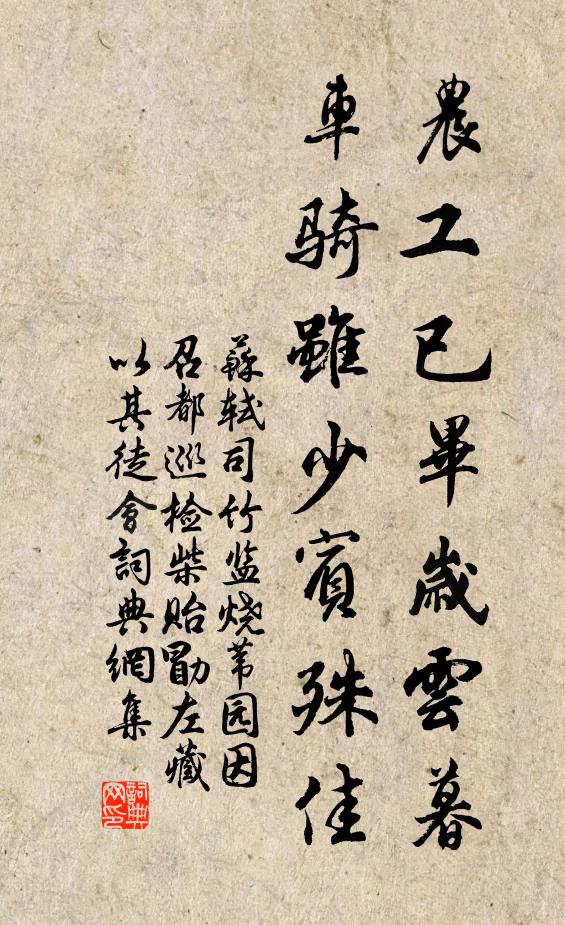 農工已畢歲雲暮
車騎雖少賓殊佳
蘇軾司竹监烧苇园因
召都巡检柴贻勖左藏
以其徒會詞典網集
詞典
网印